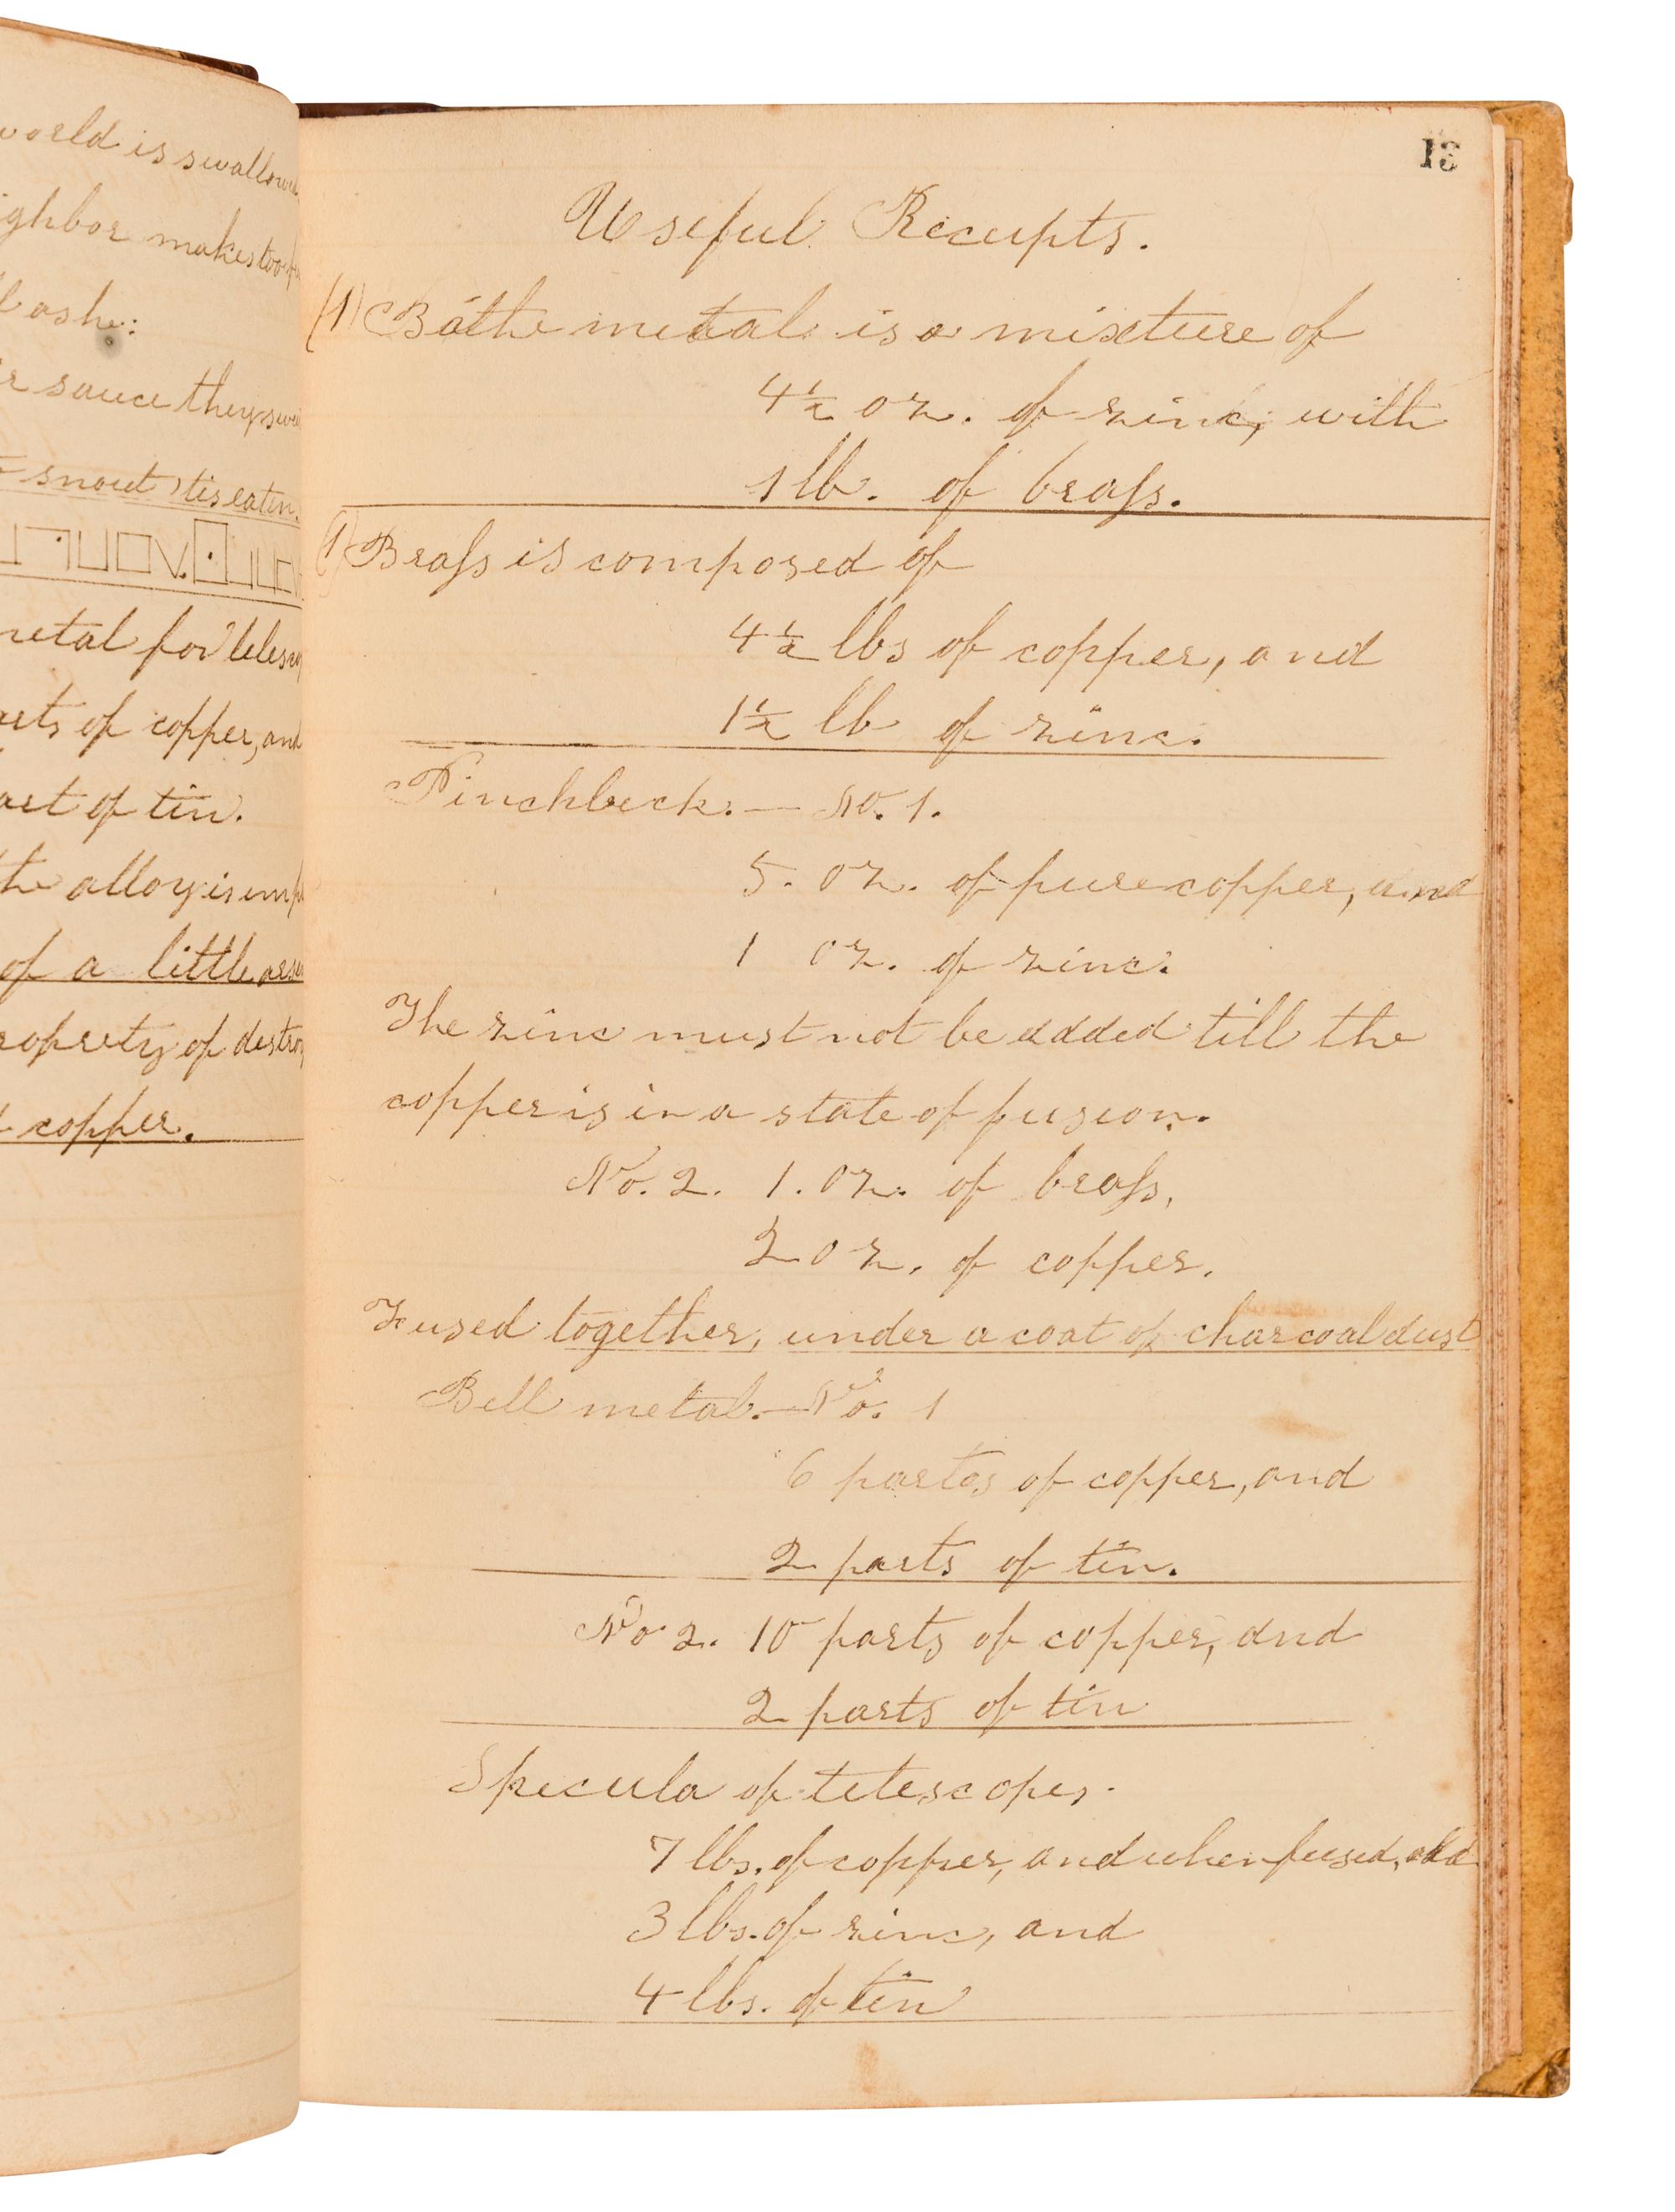 world is swallow
ighbor makes too
ash:
r sauce they
snout, tis eaten.
metal for teles
arts of copper, and
art of tin.
the alloy is
of a little
roperty of
copper.
13
Useful Receipts.
(1) Bathe metal is a mixture of
4½ oz. of zinc, with
1 lb. of braſs.
(1) Braſs is composed of
4½ lbs of copper, and
1½ lb of zinc.
Pinchbeck. — No. 1.
5. oz. of pure copper, and
1 oz. of zinc.
The zinc must not be added till the
copper is in a state of fusion.
No. 2. 1. oz. of braſs,
2 oz. of copper.
Fused together, under a coat of charcoal dust
Bell metal. — No. 1
6 partes of copper, and
2 parts of tin.
No 2. 10 parts of copper, and
2 parts of tin
Specula of telescopes.
7 lbs. of copper, and when fused, add
3 lbs. of zinc, and
4 lbs. of tin